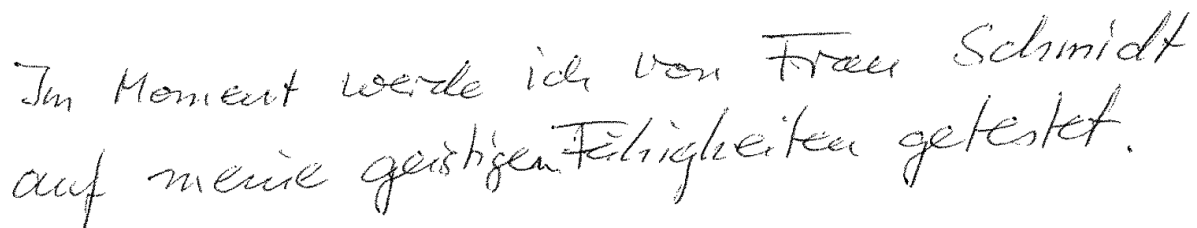 Im Moment werde ich von Frau Schmidt
auf meine geistigen Fähigkeiten getestet.